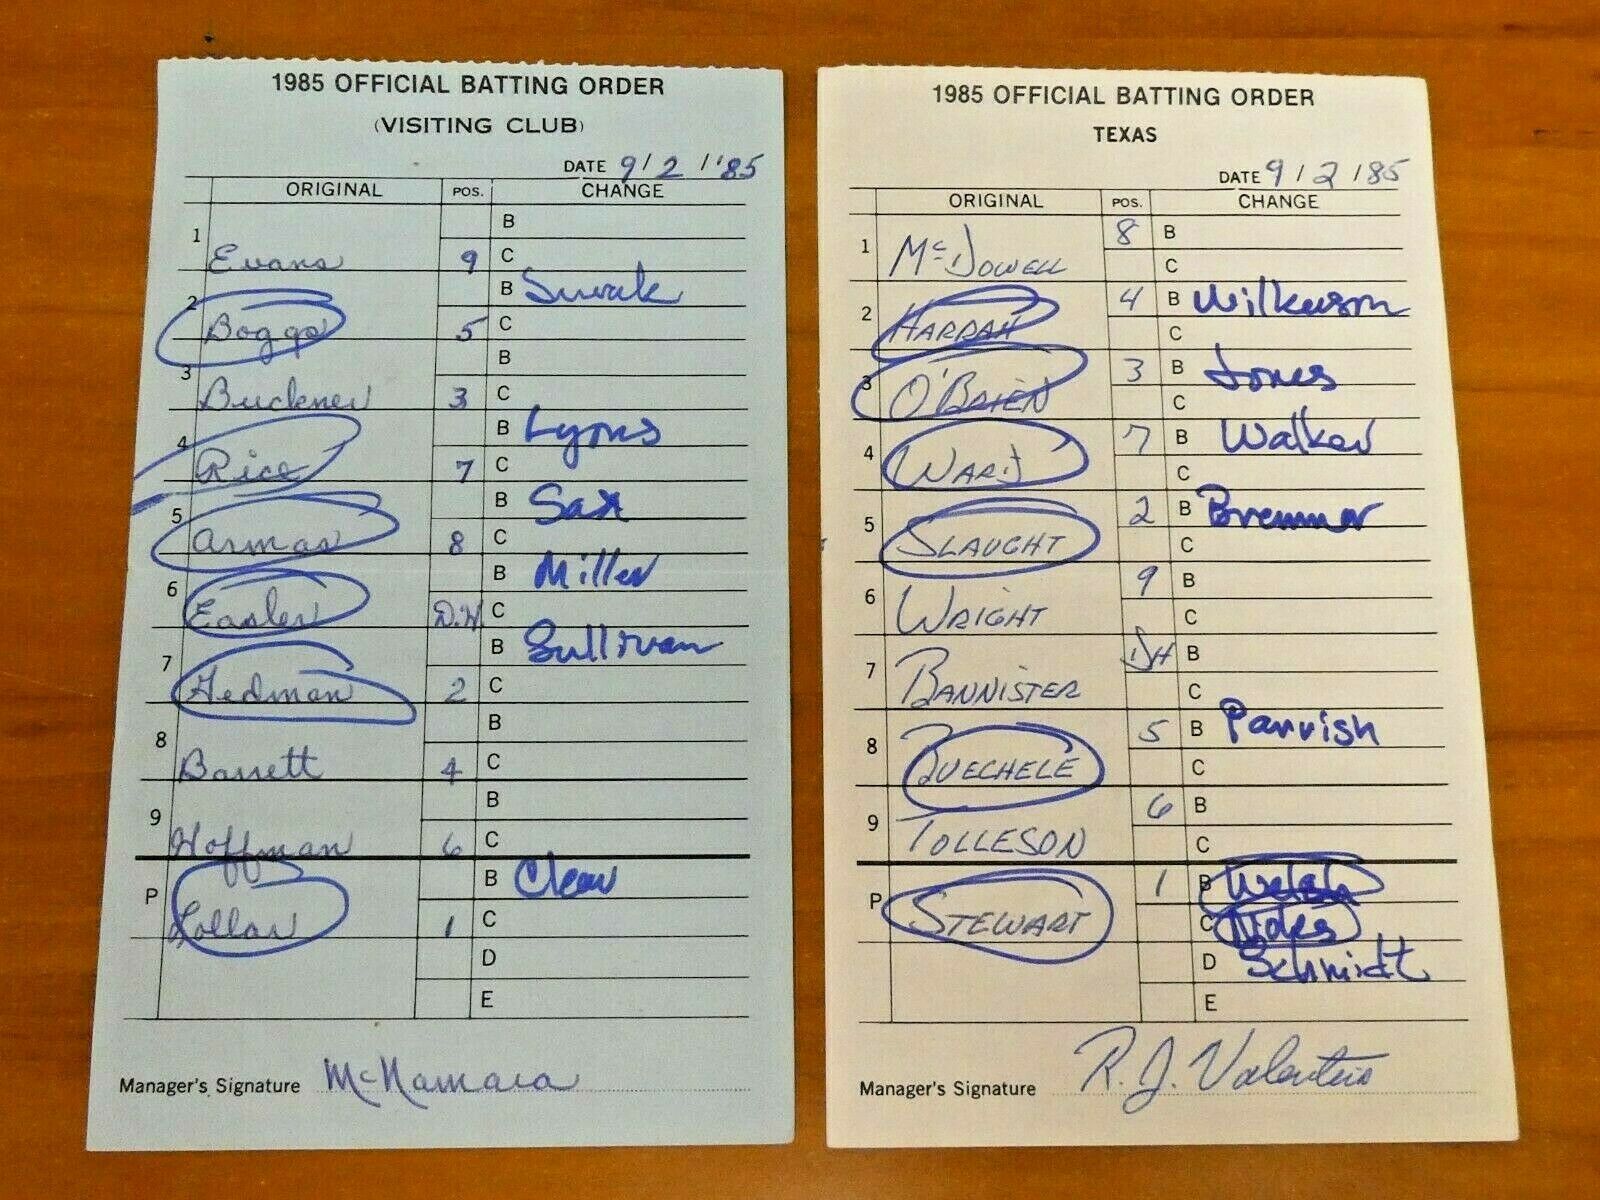 1985 OFFICIAL BATTING ORDER
(VISITING CLUB)
DATE 9/2/'85
ORIGINAL POS. CHANGE
1 Evans 9 B
C
2 Boggs 5 B
C
3 Buckner 3 B
C
4 Rice 7 B Lyons
C
5 Armas 8 B Sax
C
6 Easler D.H B Miller
C
7 Gedman 2 B Sullivan
C
8 Barrett 4 B
C
9 Hoffman 6 B
C
P Lollar 1 B Clear
C
D
E
Manager's Signature McNamara
1985 OFFICIAL BATTING ORDER
TEXAS
DATE 9/2/85
ORIGINAL POS. CHANGE
1 McDOWELL 8 B
C
2 HARRAH 4 B Wilkerson
C
3 O'BRIEN 3 B Jones
C
4 WARD 7 B Walker
C
5 SLAUGHT 2 B Brummer
C
6 WRIGHT 9 B
C
7 BANNISTER DH B
C
8 BUECHELE 5 B Parrish
C
9 TOLLESON 6 B
C
P STEWART 1 B Welsh
C
D Schmidt
E
Manager's Signature R. J. Valentine